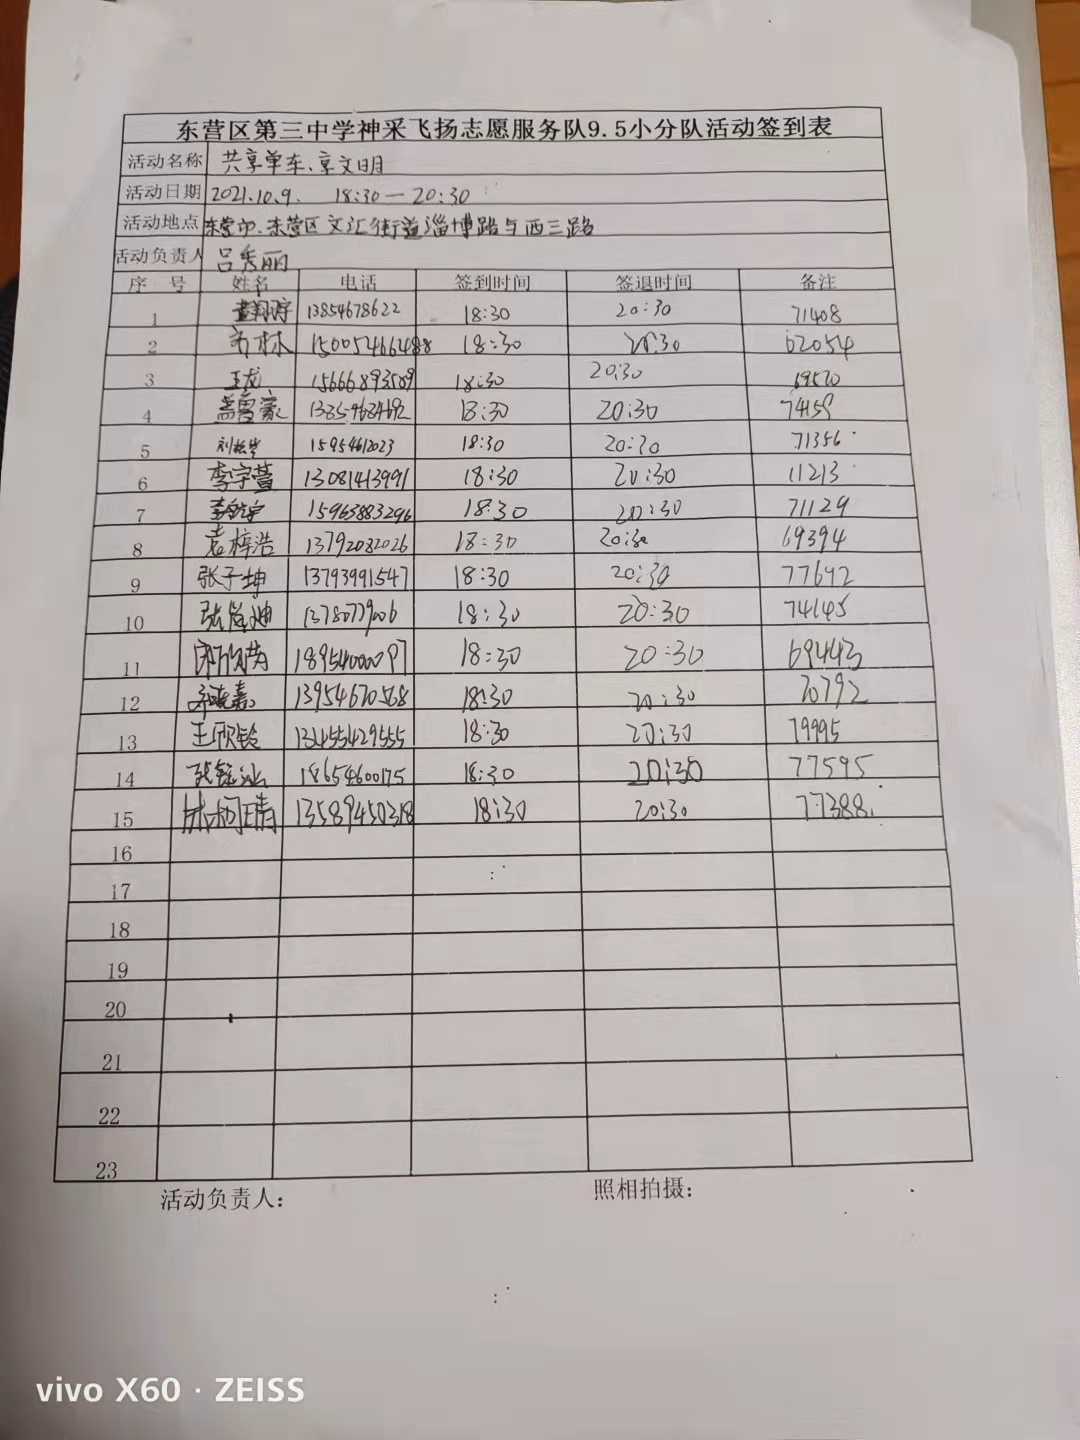 东营区第三中学神采飞扬志愿服务队9.5小分队活动签到表
活动名称 共享单车、享文明
活动日期 2021.10.9. 18:30—20:30
活动地点 东营市、东营区文汇街道淄博路与西三路
活动负责人 吕秀丽
序 号 姓名 电话 签到时间 签退时间 备注
1 13854678622 18:30 20:30 71408
2 15005466488 18:30 20:30 62054
3 王龙 15666893589 18:30 20:30 69570
4 孟鲁豪 18:30 20:30 74159
5 15954612023 18:30 20:30 71356
6 李宇萱 13081413991 18:30 20:30 11213
7 15963883296 18:30 20:30 71129
8 袁梓浩 13792082026 18:30 20:30 69394
9 张子坤 13793991547 18:30 20:30 77692
10 18:30 20:30 74145
11 18954000097 18:30 20:30 69443
12 13954670568 18:30 20:30 70792
13 王欣铃 13455429555 18:30 20:30 79995
14 18654600175 18:30 20:30 77595
15 13589450318 18:30 20:30 77388
16
17
18
19
20
21
22
23
活动负责人: 照相拍摄:
vivo X60 · ZEISS